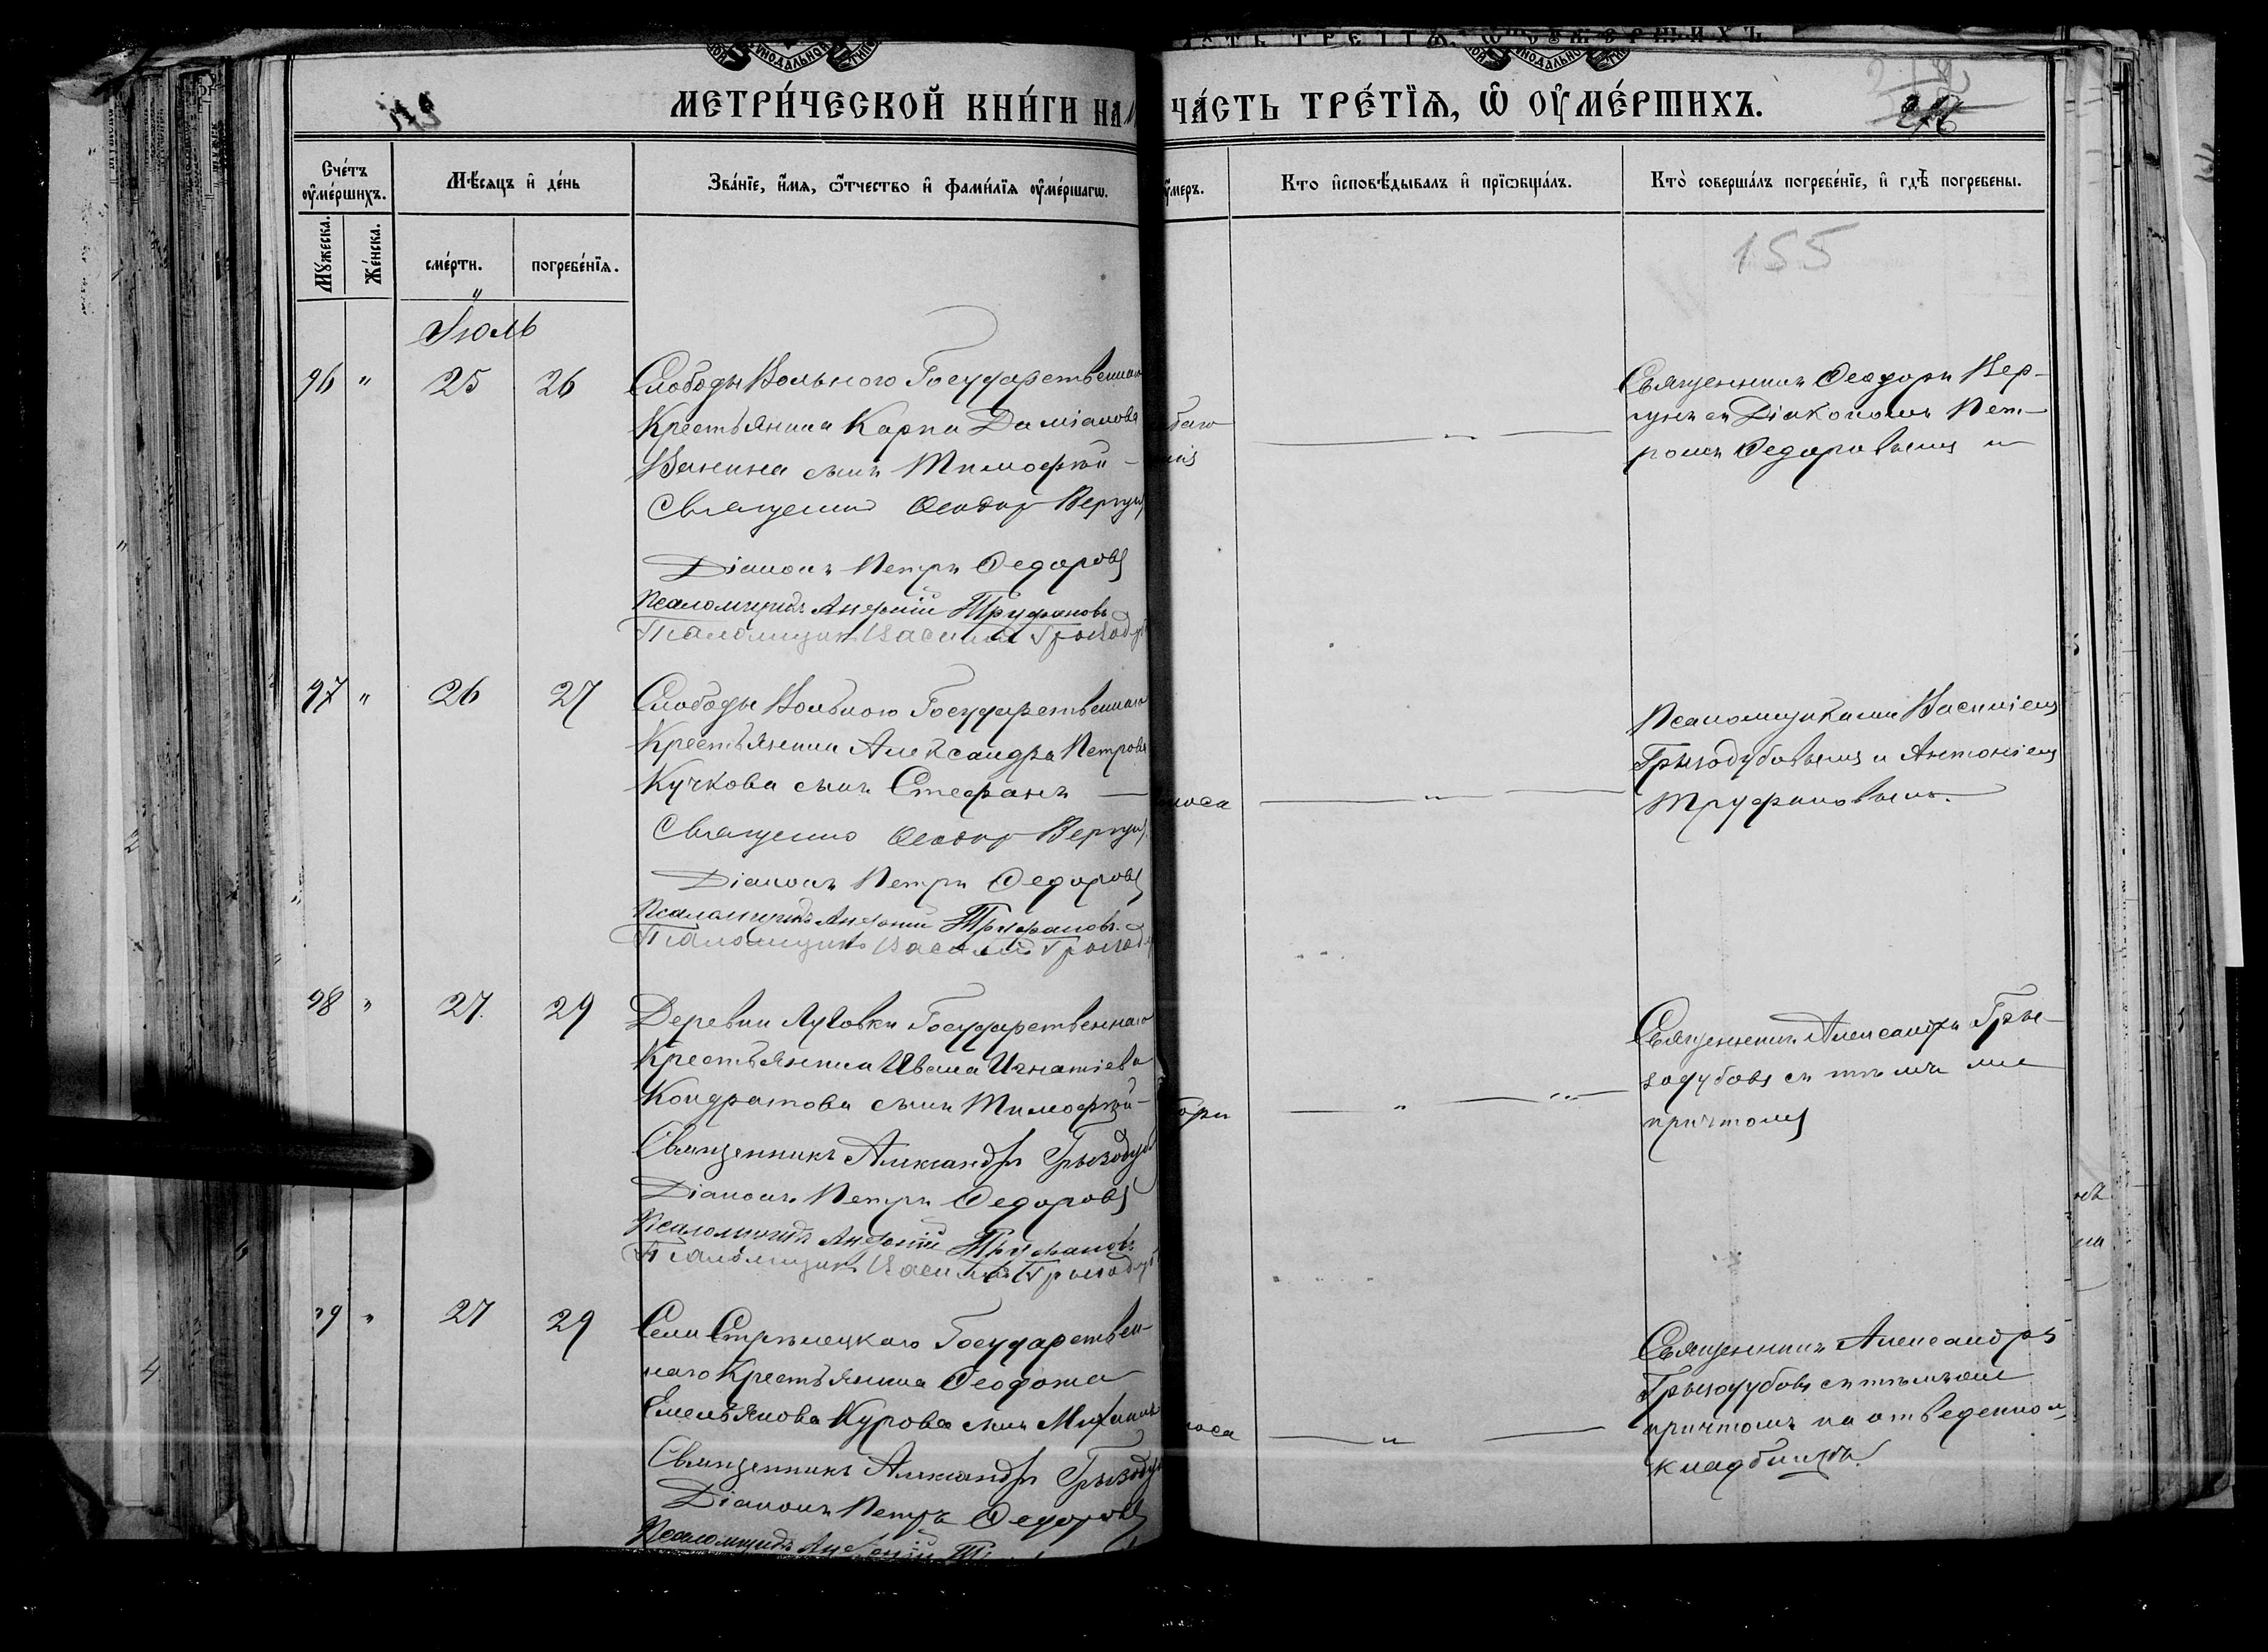 МЕТРИ́ЧЕСКОЙ КНИ́ГИ НА
ЧА́СТЬ ТРЕ́ТІѦ, Ѡ ОУ҆МЕ́РШИХЪ.
Сче́тъ оу҆ме́ршихъ.
Мѣ́сяцъ и҆ де́нь
Зва́нїе, и҆́мя, ѻ҆́тчество и҆ фами́лїя оу҆ме́ршагѡ.
у҆меръ.
Кто и҆сповѣ́дывалъ и҆ прїѡбща́лъ.
Кто̀ соверша́лъ погребе́нїе, и҆ гдѣ̀ погребены.
Мꙋ́жеска.
Же́нска.
сме́рти.
погребе́нїя.
155
Іюль
96 " 25 26
Слободы Вольного Государственнаго
Крестьянина Карпа Даміанова
Ванина сынъ Тимофей –
Священник Феодор Вергун
Діаконъ Петръ Федоровъ
Псаломщикъ Антоній Труфановъ
Псаломщикъ Василій Грызодуб
Священникъ Феодоръ Вер–
гунъ съ Діакономъ Пет–
ромъ Федоровымъ и
97 " 26 27
Слободы Вольного Государственнаго
Крестьянина Александра Петрова
Кучкова сынъ Стефанъ —
Священник Феодор Вергун
Діаконъ Петръ Федоровъ
Псаломщикъ Антоній Труфановъ
Псаломщикъ Василій Грызод
носа
Псаломщиками Василіемъ
Грызодубовымъ и Антоніемъ
Труфановымъ.
98 " 27. 29
Деревни Луговки Государственнаго
Крестьянина Ивана Игнатіева
Кондратова сынъ Тимофей–
Священникъ Александръ Грызодуб
Діаконъ Петръ Федоровъ
Псаломщикъ Антоній Труфановъ
Псаломщикъ Василій Грызодуб
ори
Священникъ Александръ Гры–
зодубовъ съ тѣмъ же
причтомъ
99 " 27 29
Села Стрѣлецкаго Государствен–
наго Крестьянина Феофана
Емельянова Курова сынъ Михаилъ
Священникъ Александръ Грызодуб
Діаконъ Петръ Федоровъ
Псаломщикъ Антоній
носа
Священникъ Александръ
Грызодубовъ съ тѣмъ же
причтомъ на отведенномъ
кладбищѣ.